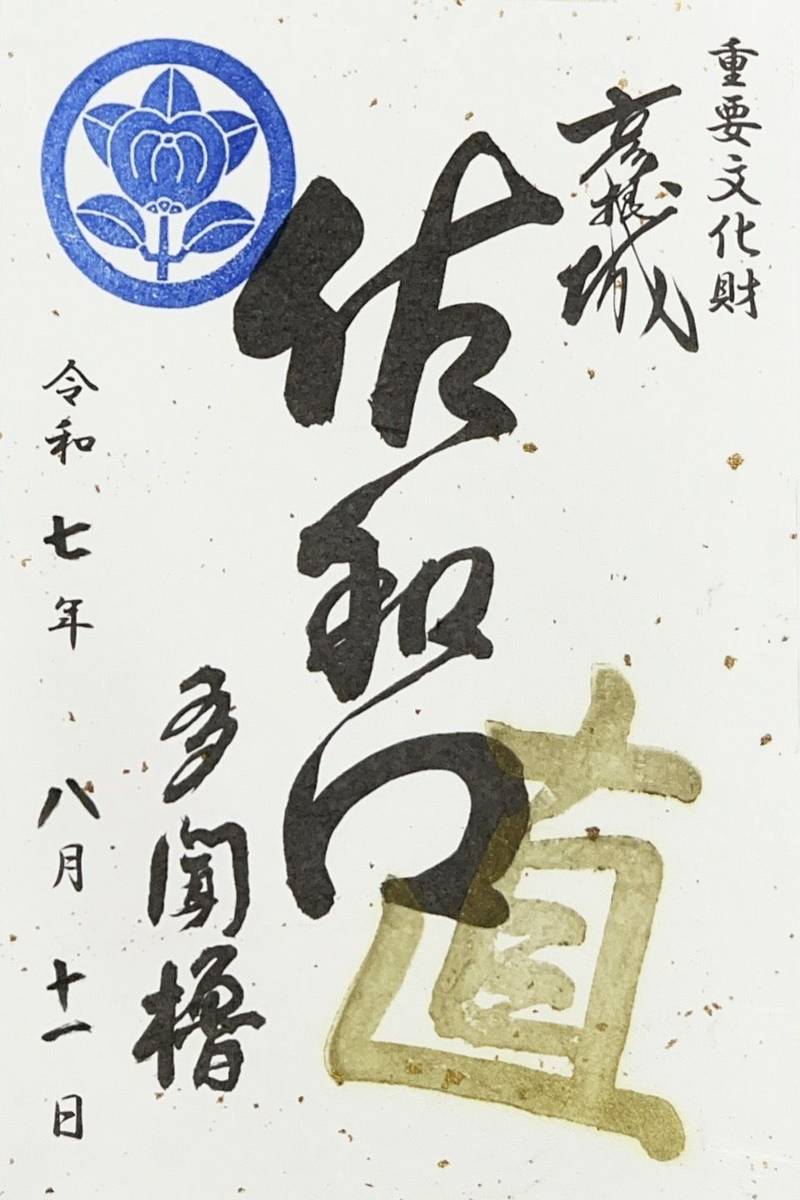 重要文化財
彦根城
佐和口
直
多聞櫓
令和七年八月十一日